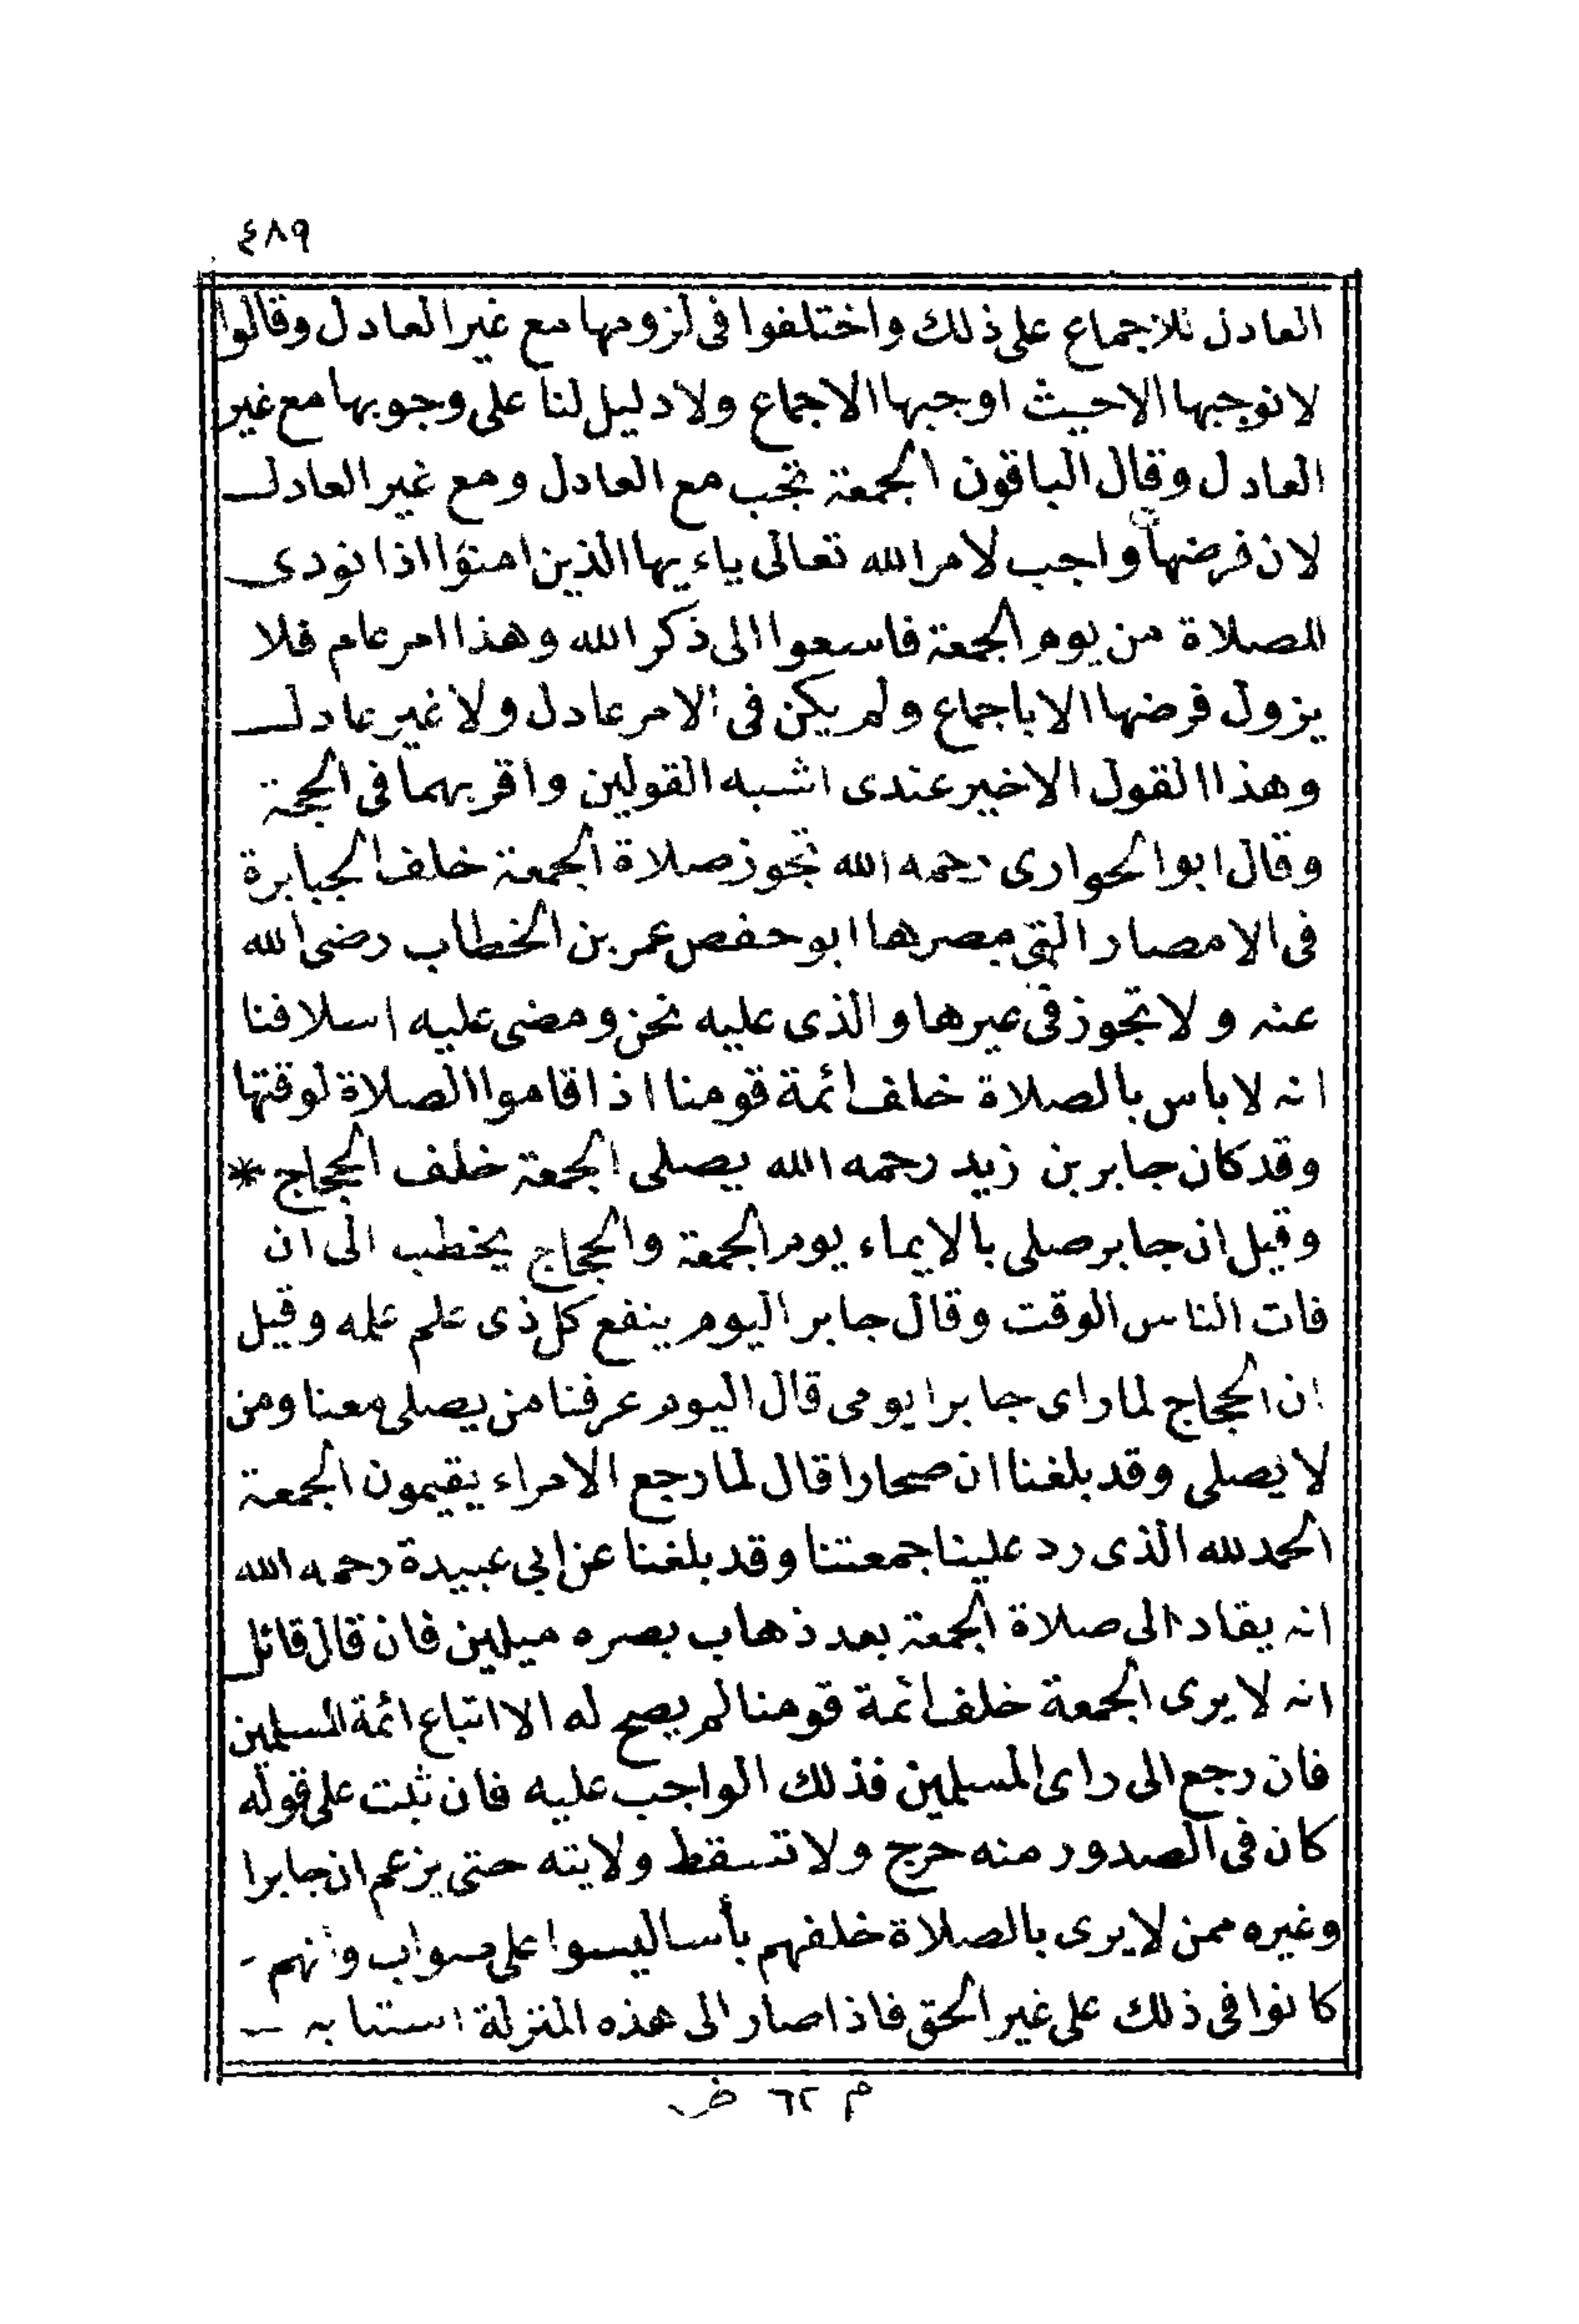 ٤٨٩
العادل للاجماع على ذلك واختلفوا فى لزومها مع غير العادل وقالوا
لا نوجبها الاحيث اوجبها الاجماع ولا دليل لنا على وجوبها مع غير
العادل وقال الباقون الجمعة تجب مع العادل ومع غير العادل
لان فرضها واجب لامر الله تعالى ياءيها الذين امنوا اذا نودى
للصلاة من يوم الجمعة فاسعوا الى ذكر الله وهذا امر عام فلا
يزول فرضها الا باجماع ولم يكن فى الامر عادل ولا غير عادل
وهذا القول الاخير عندى اشبه القولين واقربهما فى الحجة
وقال ابو الحوارى رحمه الله تجوز صلاة الجمعة خلف الجبابرة
فى الامصار التى مصرها ابو حفص عمر بن الخطاب رضى الله
عنه ولا تجوز فى غيرها والذى عليه نحن ومضى عليه اسلافنا
انه لا باس بالصلاة خلف ائمة قومنا اذا قاموا الصلاة لوقتها
وقد كان جابر بن زيد رحمه الله يصلى الجمعة خلف الحجاج *
وقيل ان جابر صلى بالايماء يوم الجمعة والحجاج يخطب الى ان
فات الناس الوقت وقال جابر اليوم ينفع كل ذى علم علمه وقيل
ان الحجاج لما راى جابرا يومى قال اليوم عرفنا من يصلى معنا ومن
لا يصلى وقد بلغنا ان صحارا قال لما رجع الامراء يقيمون الجمعة
الحمد لله الذى رد علينا جمعتنا وقد بلغنا عن ابى عبيدة رحمه الله
انه يقاد الى صلاة الجمعة بعد ذهاب بصره ميلين فان قال قائل
انه لا يرى الجمعة خلف ائمة قومنا لم يصح له الا اتباع ائمة المسلمين
فان رجع الى راى المسلمين فذلك الواجب عليه فان ثبت على قوله
كان فى الصدور منه حرج ولا تسقط ولايته حتى يزعم ان جابرا
وغيره ممن لا يرى بالصلاة خلفهم بأسا ليسوا على صواب وانهم -
كانوا فى ذلك على غير الحق فاذا صار الى هذه المنزلة استتابه
م ٦٢ ض